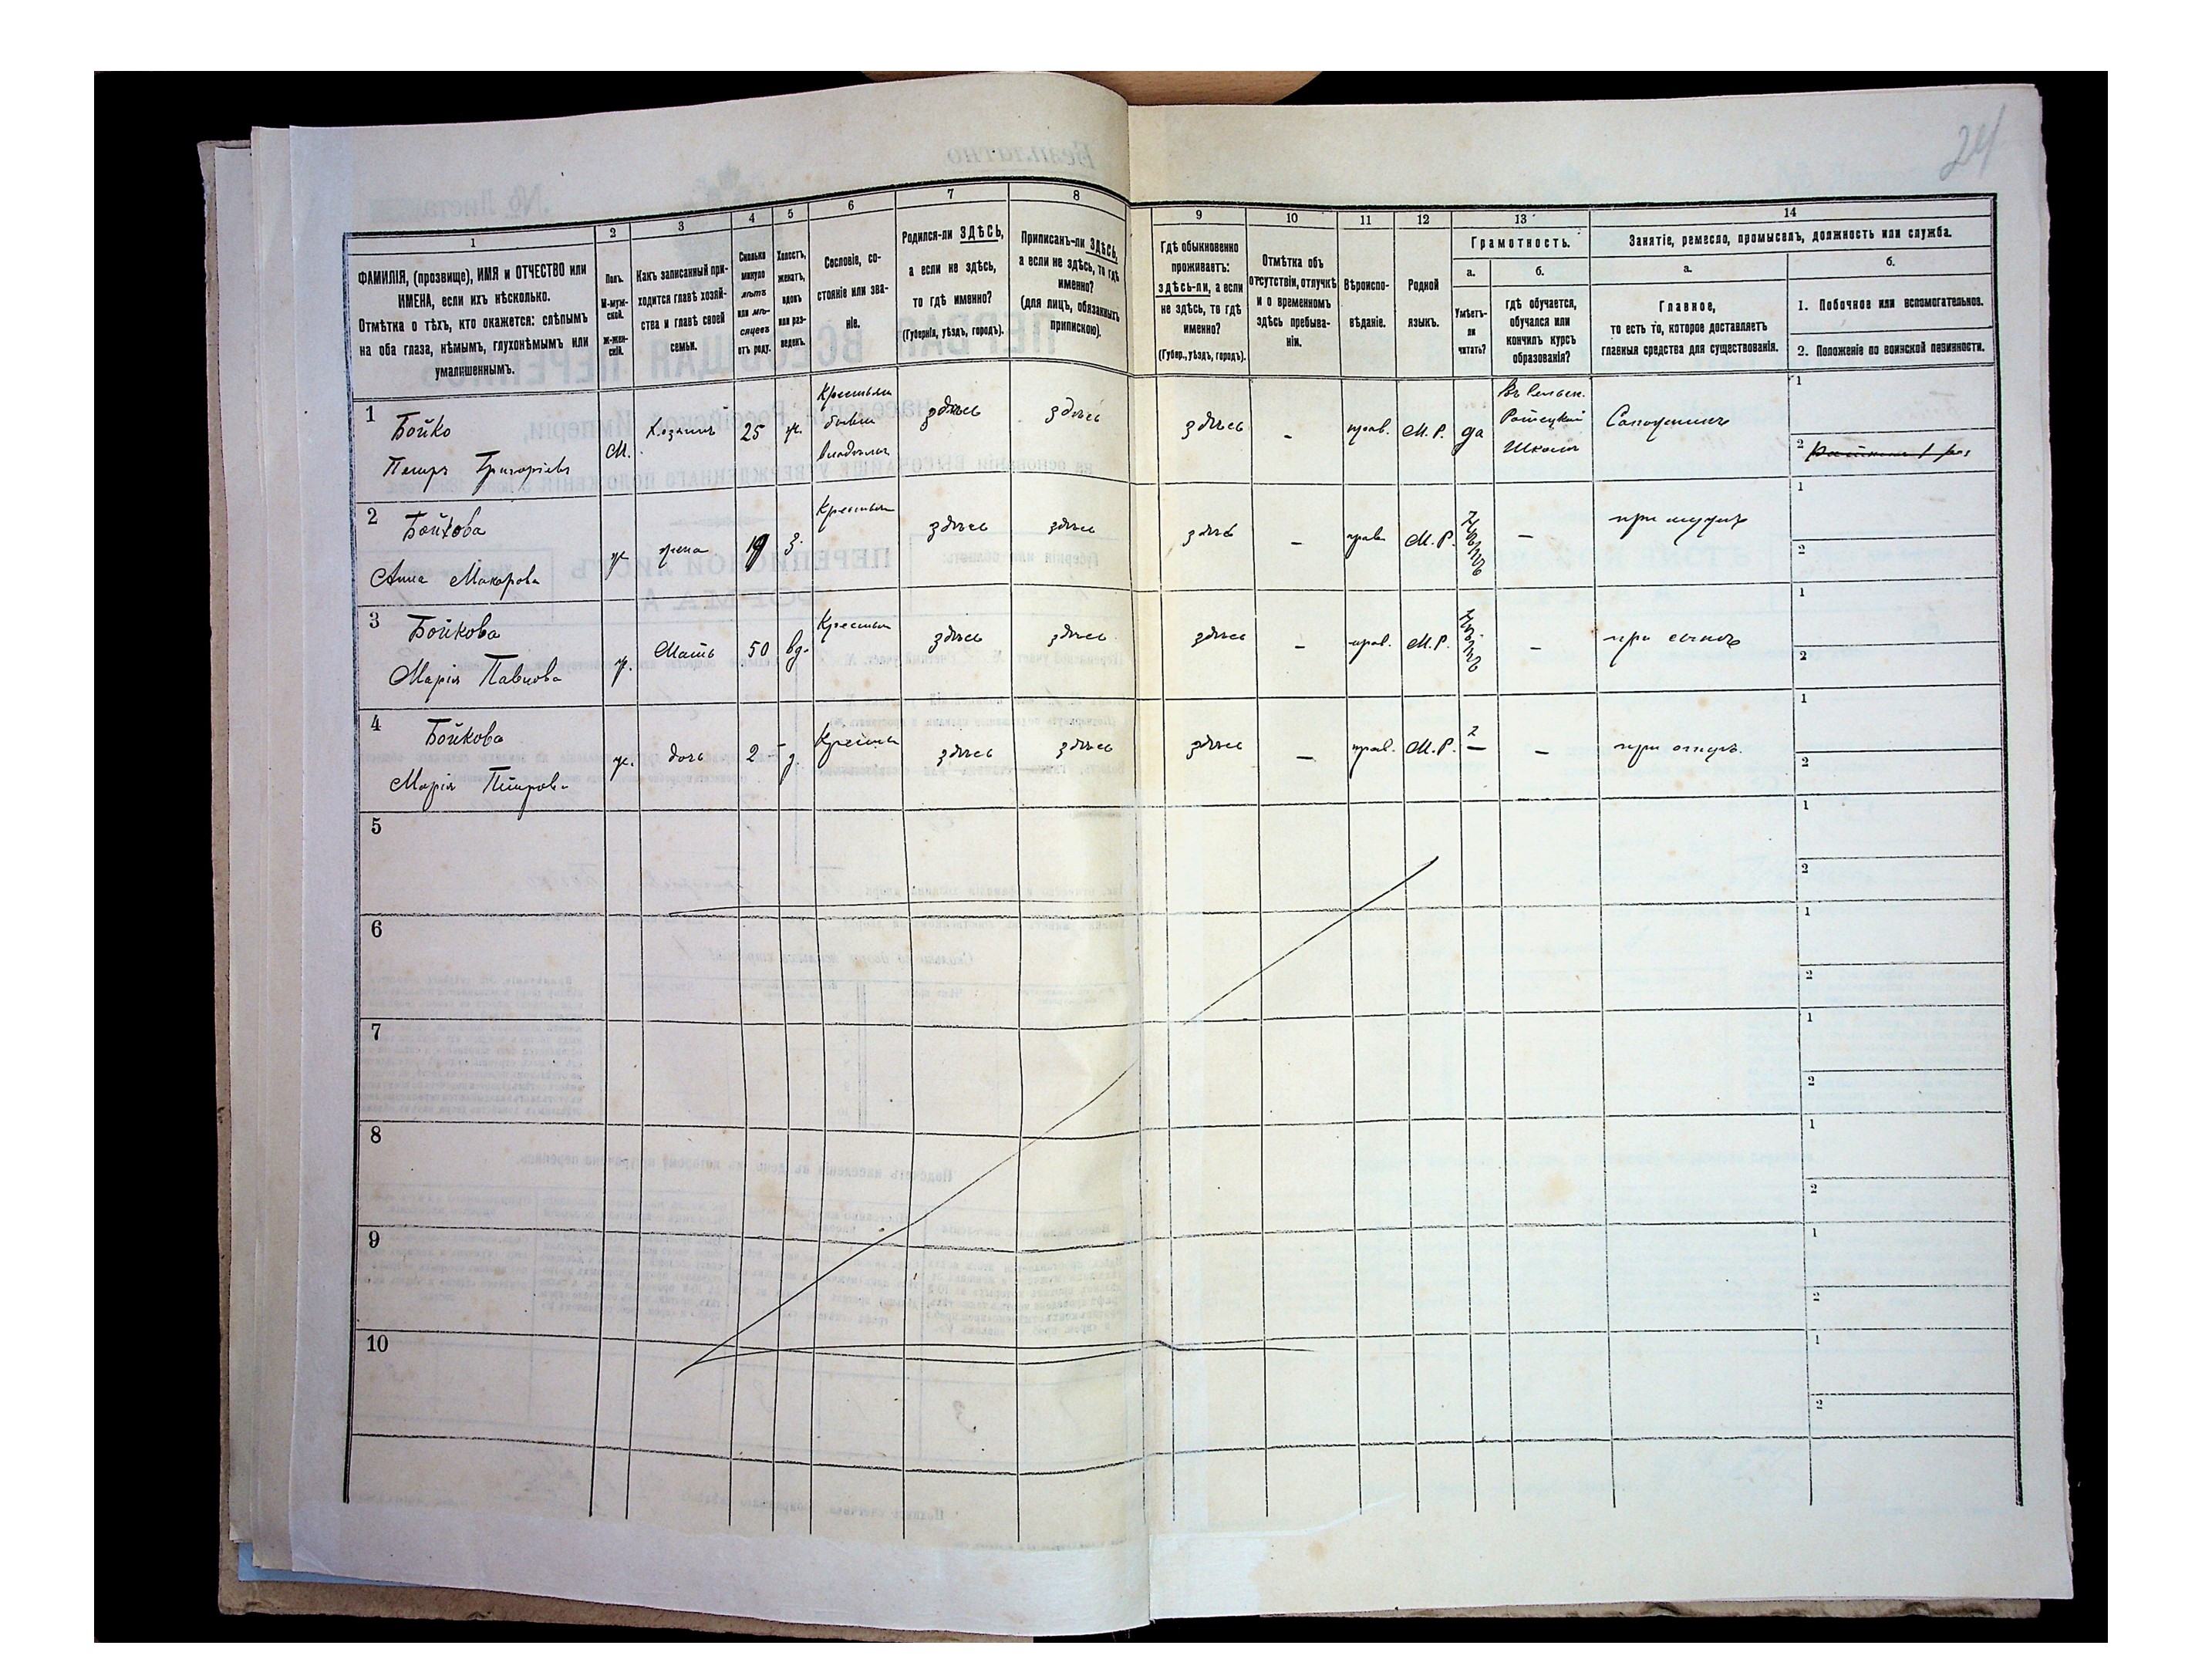 24
1 2 3 4 5 6 7 8 9 10 11 12 13 14
ФАМИЛІЯ, (прозвище), ИМЯ и ОТЧЕСТВО или
ИМЕНА, если ихъ нѣсколько.
Отмѣтка о тѣхъ, кто окажется: слѣпымъ
на оба глаза, нѣмымъ, глухонѣмымъ или
умалишеннымъ.
Полъ.
М-муж-
ской.
Ж-жен-
скій.
Какъ записанный при-
ходится главѣ хозяй-
ства и главѣ своей
семьи.
Сколько
минуло
лѣтъ
или мѣ-
сяцевъ
отъ роду.
Холостъ,
женатъ,
вдовъ
или раз-
веденъ.
Сословіе, со-
стояніе или зва-
ніе.
Родился-ли ЗДѢСЬ,
а если не здѣсь,
то гдѣ именно?
(Губернія, уѣздъ, городъ).
Приписанъ-ли ЗДѢСЬ,
а если не здѣсь, то гдѣ
именно?
(для лицъ, обязанныхъ
припискою).
Гдѣ обыкновенно
проживаетъ:
здѣсь-ли, а если
не здѣсь, то гдѣ
именно?
(Губер., уѣздъ, городъ).
Отмѣтка объ
отсутствіи, отлучкѣ
и о временномъ
здѣсь пребыва-
ніи.
Вѣроиспо-
вѣданіе.
Родной
языкъ.
Грамотность.
а.
Умѣетъ-
ли
читать?
б.
гдѣ обучается,
обучался или
кончилъ курсъ
образованія?
Занятіе, ремесло, промыселъ, должность или служба.
а.
Главное,
то есть то, которое доставляетъ
главныя средства для существованія.
б.
1. Побочное или вспомогательное.
2. Положеніе по воинской повинности.
1 Бойко
Петръ Григорьевъ
М. Хозяинъ 25 ж.
здѣсь здѣсь здѣсь - прав. М.Р. да
Школѣ
Сапожникъ
1
2
2 Бойкова
Анна Макарова
ж жена 19 з.
здѣсь здѣсь здѣсь - прав М.Р. нѣтъ - при мужѣ
1
2
3 Бойкова
Марія Павлова
ж. Мать 50 вд.
здѣсь здѣсь здѣсь - прав. М.Р. нѣтъ - при сынѣ
1
2
4 Бойкова
Марія Петрова
ж. дочь 2 - д.
здѣсь здѣсь здѣсь - прав. М.Р. - - при отцѣ.
1
2
5
1
2
6
1
2
7
1
2
8
1
2
9
1
2
10
1
2